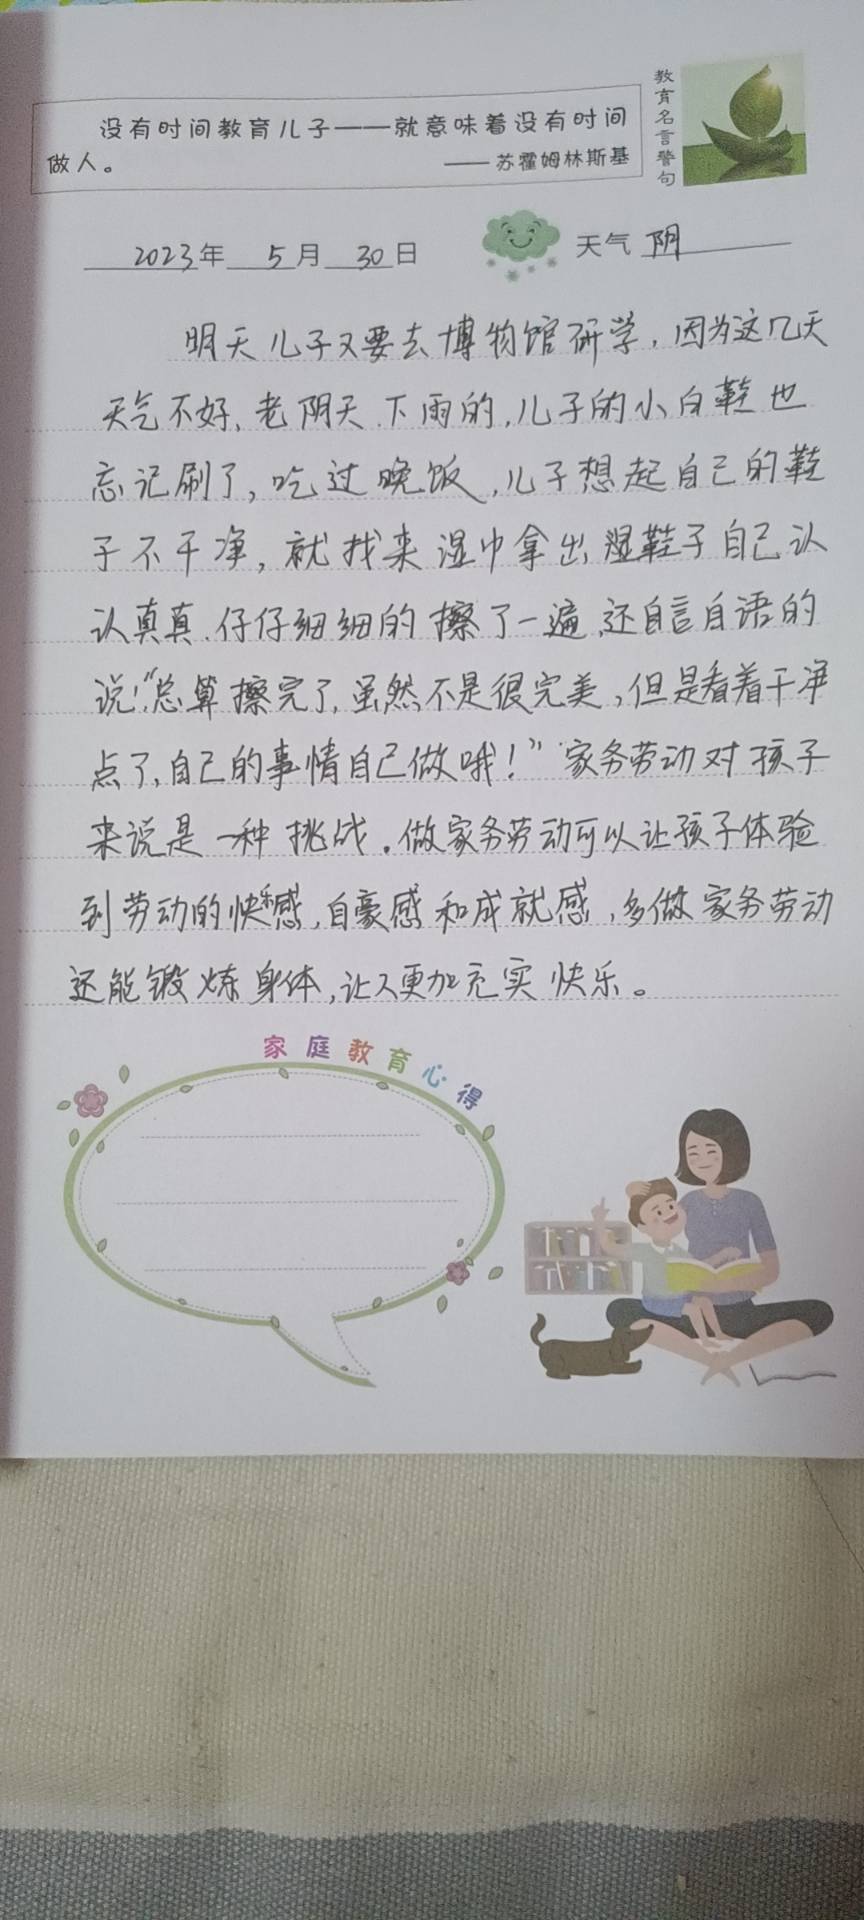 没有时间教育儿子——就意味着没有时间
做人。
——苏霍姆林斯基
教育名言警句
2023年 5月 30日
天气 阴
明天儿子又要去博物馆研学，因为这几天
天气不好，老阴天.下雨的，儿子的小白鞋也
忘记刷了，吃过晚饭，儿子想起自己的鞋
子不干净，就找来湿巾拿出湿鞋子自己认
认真真.仔仔细细的擦了一遍，还自言自语的
说！“总算擦完了，虽然不是很完美，但是看着干净
点了，自己的事情自己做哦！”家务劳动对孩子
来说是一种挑战。做家务劳动可以让孩子体验
到劳动的快乐感，自豪感和成就感，多做家务劳动
还能锻炼身体，让人更加充实快乐。
家庭教育心得